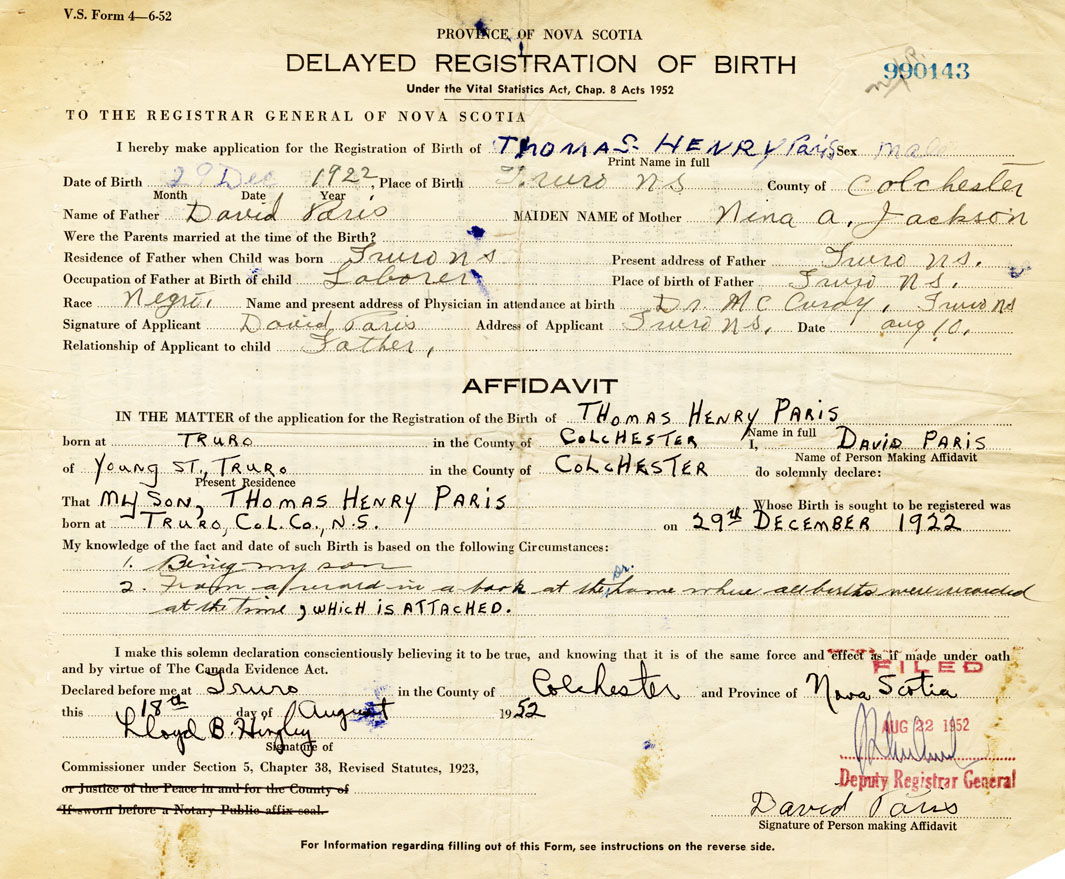 V.S. Form 4—6-52
PROVINCE OF NOVA SCOTIA
DELAYED REGISTRATION OF BIRTH
990143
Under the Vital Statistics Act, Chap. 8 Acts 1952
TO THE REGISTRAR GENERAL OF NOVA SCOTIA
I hereby make application for the Registration of Birth of THOMAS HENRY Paris Sex male
Print Name in full
Date of Birth 29 Dec 1922, Place of Birth Truro NS County of Colchester
Month Date Year
Name of Father David Paris MAIDEN NAME of Mother Nina A. Jackson
Were the Parents married at the time of the Birth?
Residence of Father when Child was born Truro NS Present address of Father Truro NS.
Occupation of Father at Birth of child Laborer Place of birth of Father Truro NS.
Race Negro. Name and present address of Physician in attendance at birth Dr. McCurdy, Truro NS
Signature of Applicant David Paris Address of Applicant Truro NS. Date Aug 10.
Relationship of Applicant to child Father,
AFFIDAVIT
IN THE MATTER of the application for the Registration of the Birth of THOMAS HENRY PARIS
Name in full
born at TRURO in the County of COLCHESTER I, DAVID PARIS
Name of Person Making Affidavit
of YOUNG ST., TRURO in the County of COLCHESTER do solemnly declare:
Present Residence
That MY SON, THOMAS HENRY PARIS Whose Birth is sought to be registered was
born at TRURO, COL. CO., N.S. on 29th DECEMBER 1922
My knowledge of the fact and date of such Birth is based on the following Circumstances:
1. Being my son
2. From a record in a book at the Dr. home where all births were recorded
at the time, WHICH IS ATTACHED.
I make this solemn declaration conscientiously believing it to be true, and knowing that it is of the same force and effect as if made under oath
and by virtue of The Canada Evidence Act.
FILED
Declared before me at Truro in the County of Colchester and Province of Nova Scotia
this 18th day of August 1952
AUG 22 1952
Lloyd B. Hingley
Signature of
Commissioner under Section 5, Chapter 38, Revised Statutes, 1923,
Deputy Registrar General
or Justice of the Peace in and for the County of
If sworn before a Notary Public affix seal.
David Paris
Signature of Person making Affidavit
For Information regarding filling out of this Form, see instructions on the reverse side.